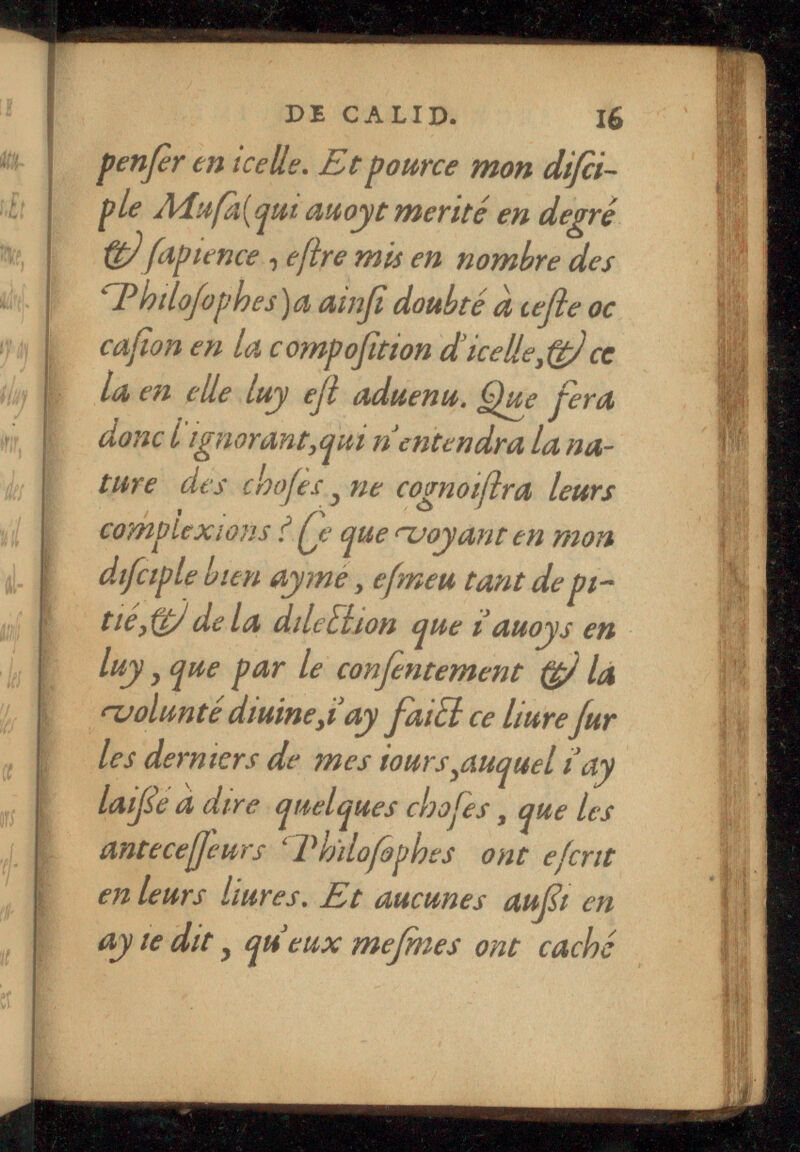 DE CALID. 16
penſer en icelle. Et pource mon diſci-
ple Muſa(qui auoyt merité en degré
& ſapience, eſtre mis en nombre des
Philoſophes)a ainſi doubté à ceſte oc
caſion en la compoſition d'icelle,& ce
la en elle luy eſt aduenu. Que ſera
donc l'ignorant,qui n'entendra la na-
ture des choſes, ne cognoiſtra leurs
complexions? Ce que voyant en mon
diſciple bien aymé, eſmeu tant de pi-
tié,& de la dilection que i'auoys en
luy, que par le conſentement & la
volunté diuine,i'ay faict ce liure ſur
les derniers de mes iours,auquel i'ay
laiſſé à dire quelques choſes, que les
anteceſſeurs Philoſophes ont eſcrit
en leurs liures. Et aucunes auſſi en
ay ie dit, qu'eux meſmes ont caché